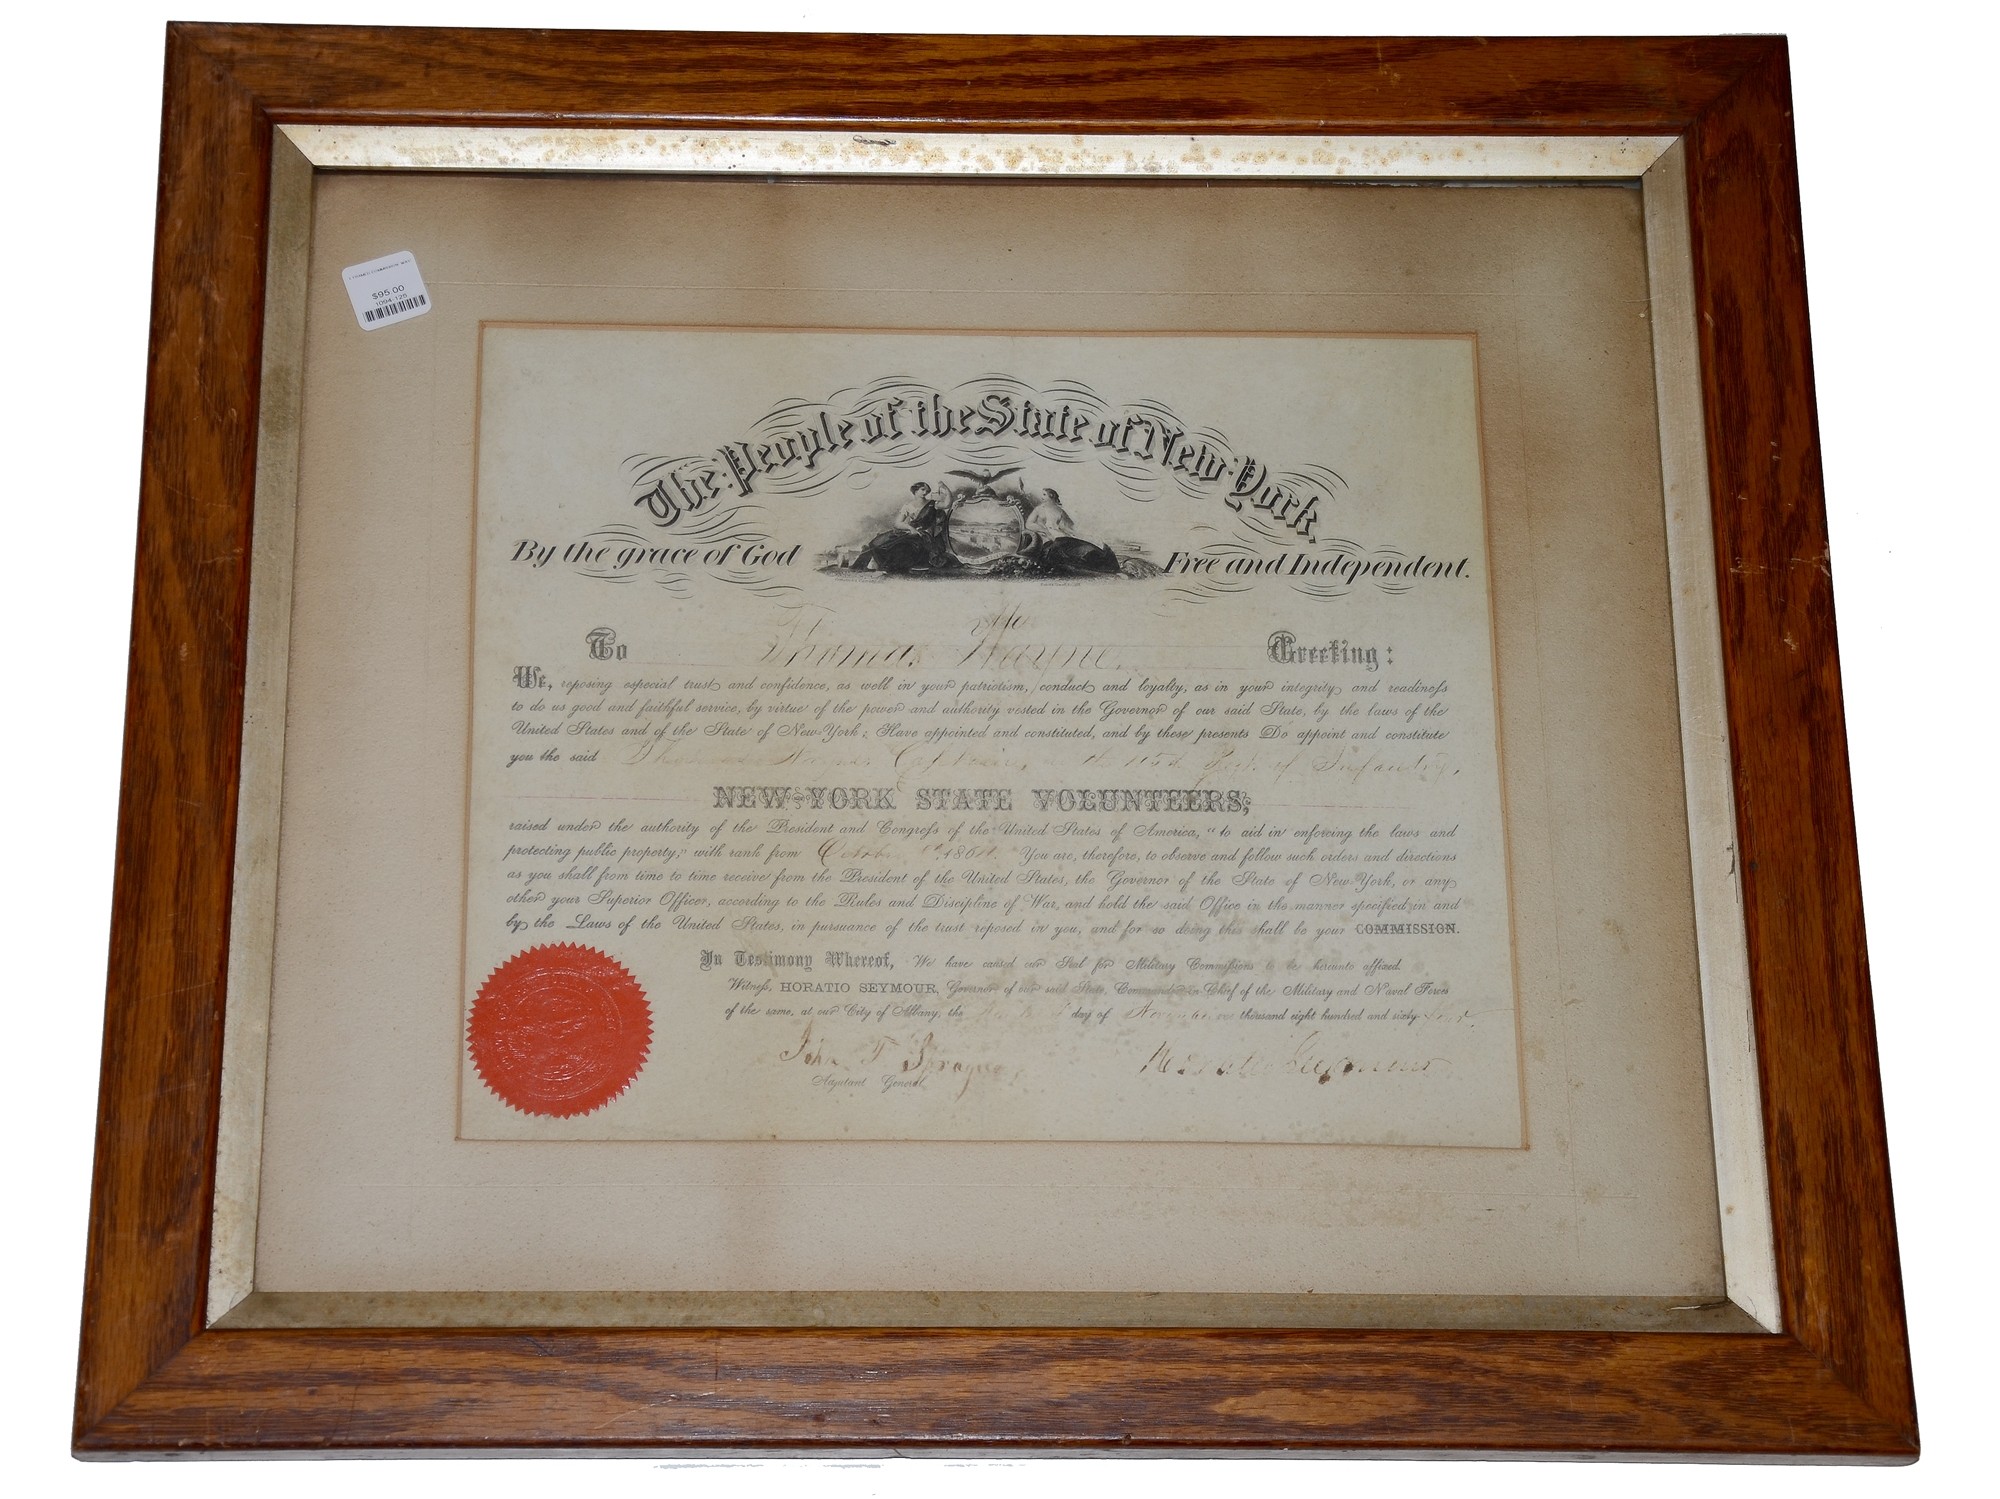 $95.00
1094 125
The People of the State of New-York,
By the grace of God Free and Independent.
To Thomas Wayne, Greeting:
We, reposing especial trust and confidence, as well in your patriotism, conduct and loyalty, as in your integrity and readiness
to do us good and faithful service, by virtue of the power and authority vested in the Governor of our said State, by the laws of the
United States and of the State of New-York; Have appointed and constituted, and by these presents Do appoint and constitute
you the said Thomas Wayne Captain, in the 115th Regt. of Infantry,
NEW-YORK STATE VOLUNTEERS;
raised under the authority of the President and Congress of the United States of America, "to aid in enforcing the laws and
protecting public property," with rank from October 1864. You are, therefore, to observe and follow such orders and directions
as you shall from time to time receive from the President of the United States, the Governor of the State of New-York, or any
other your Superior Officer, according to the Rules and Discipline of War, and hold the said Office in the manner specified in and
by the Laws of the United States, in pursuance of the trust reposed in you, and for so doing this shall be your COMMISSION.
In Testimony Whereof, We have caused our Seal for Military Commissions to be hereunto affixed.
Witness, HORATIO SEYMOUR, Governor of our said State, Commander in Chief of the Military and Naval Forces
of the same, at our City of Albany, the day of November one thousand eight hundred and sixty-four.
John T Sprague Horatio Seymour
Adjutant General